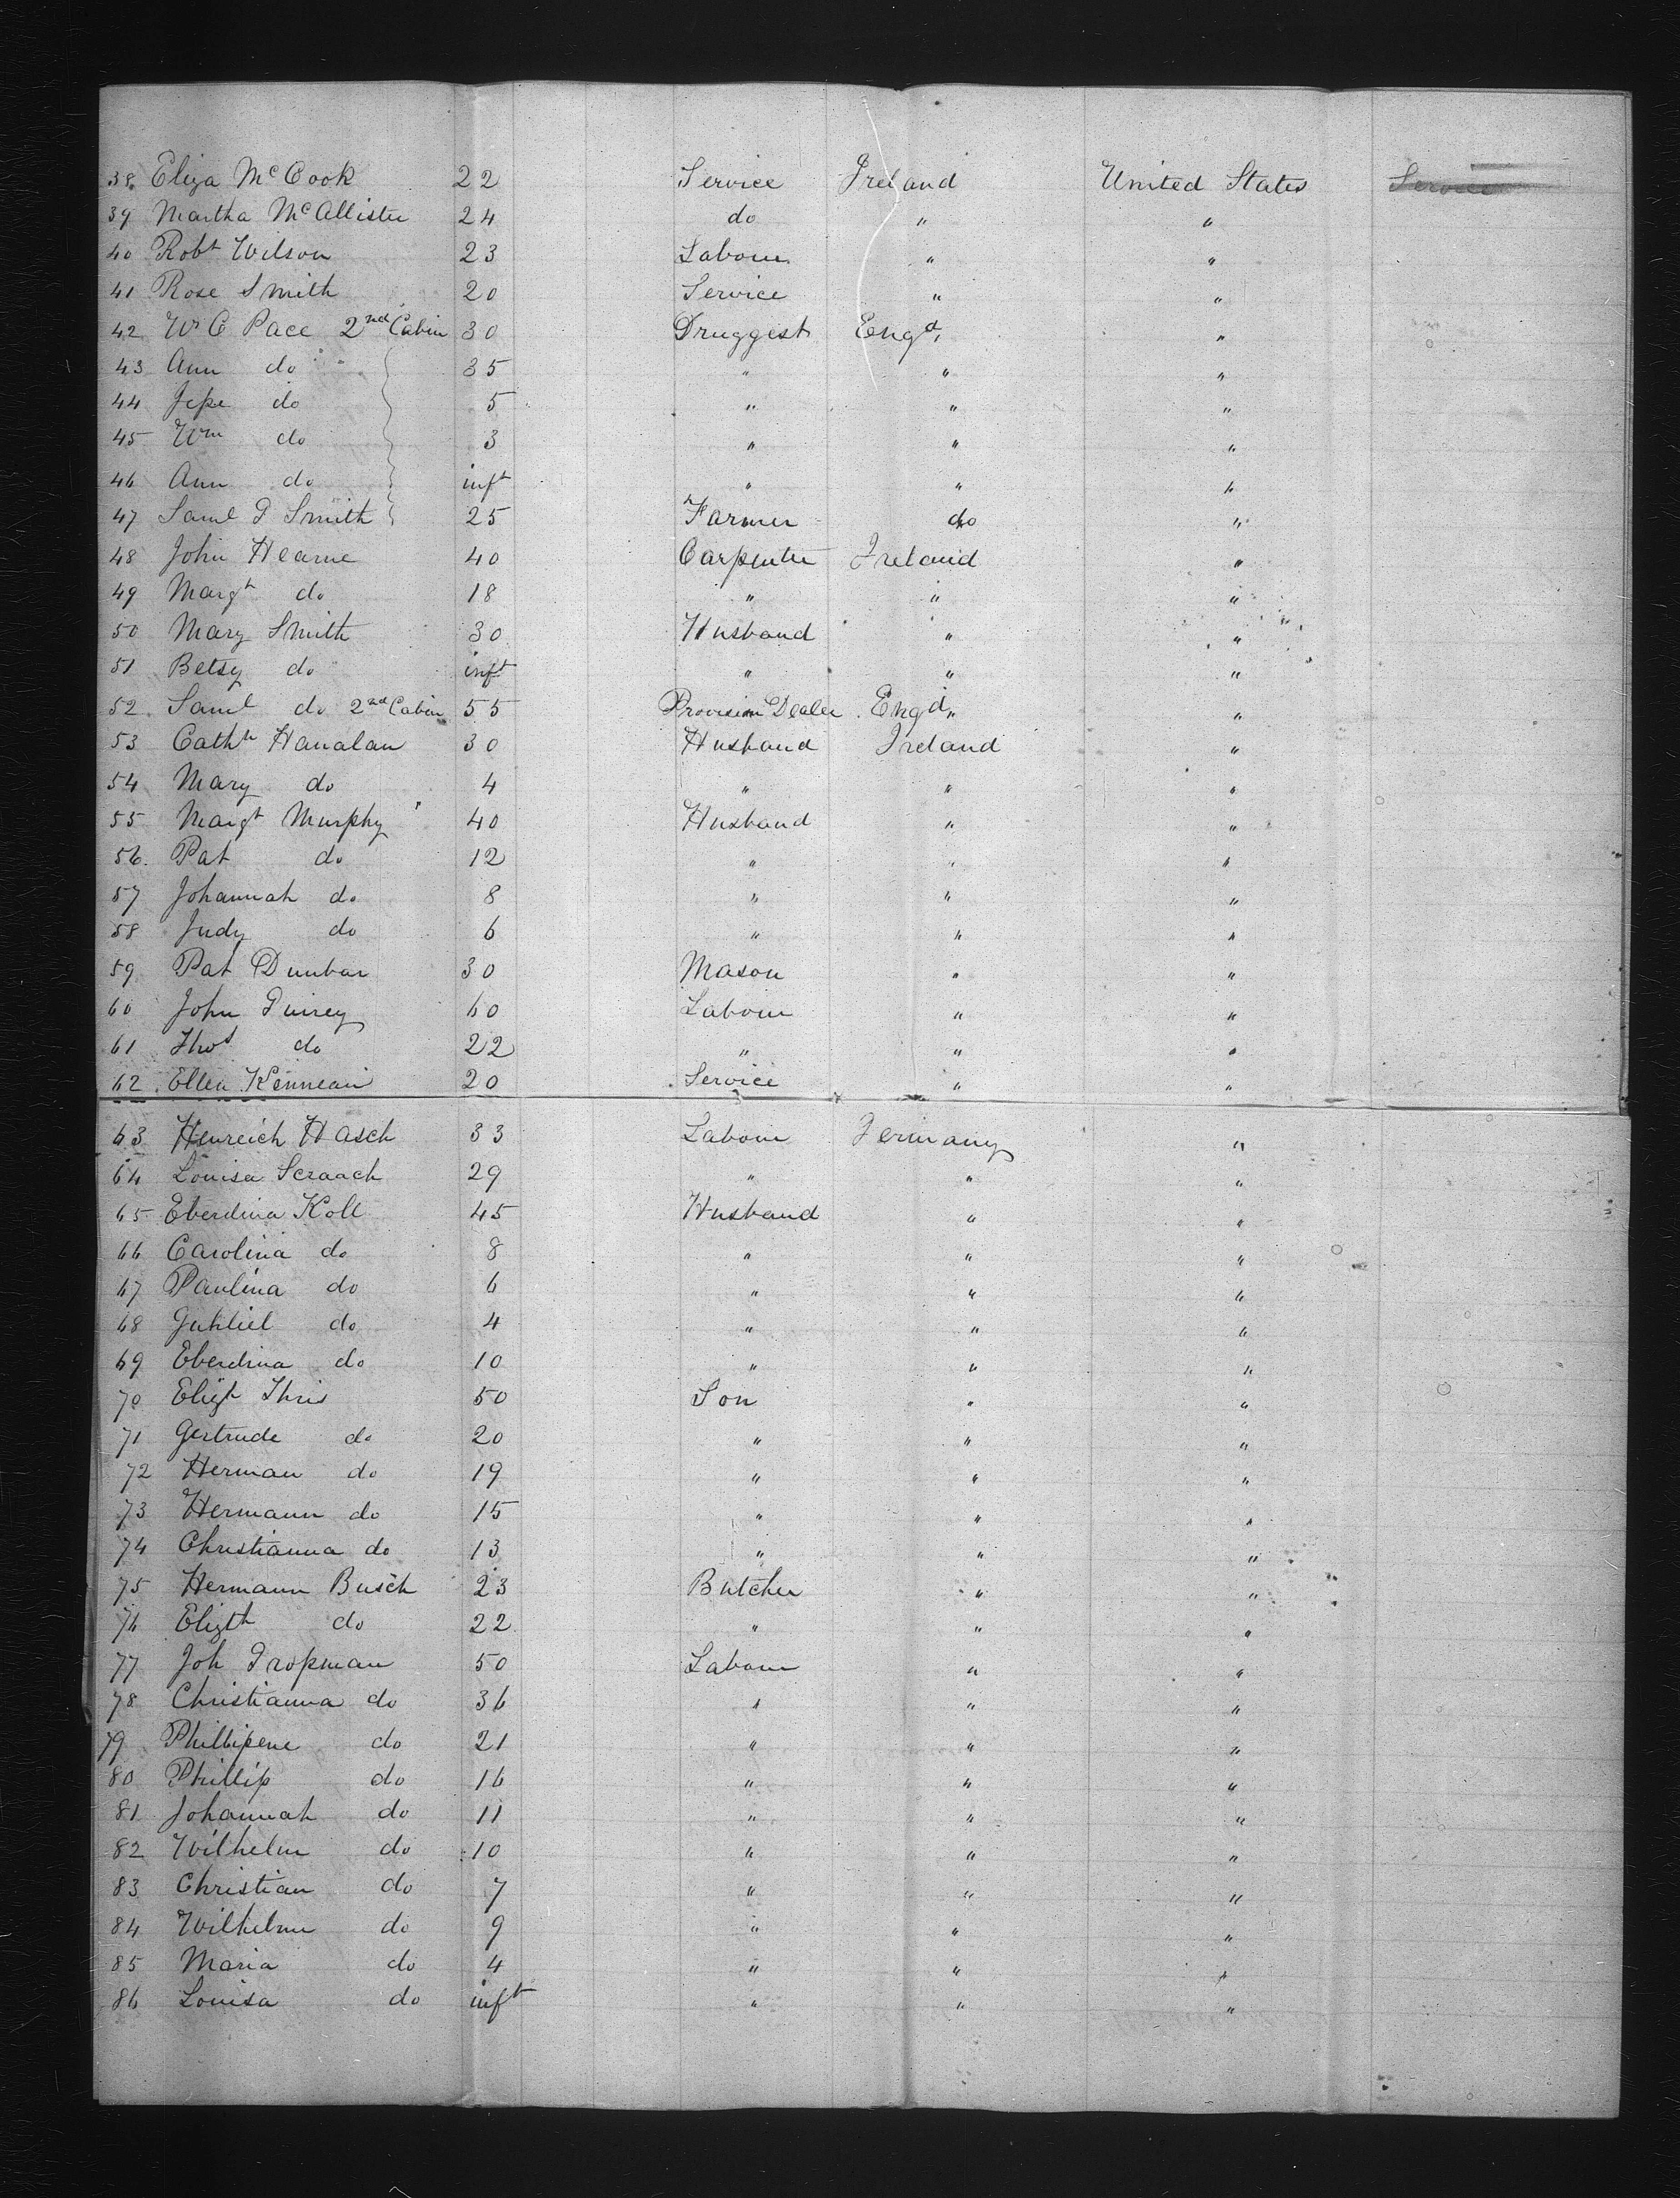 38 Eliza McCook 22 Service Ireland United States Service
39 Martha McAllister 24 do " "
40 Robt Wilson 23 Labour " "
41 Rose Smith 20 Service " "
42 W C Pace 2nd Cabin 30 Druggest Engd "
43 Ann do 35 " " "
44 Jesse do 5 " " "
45 Wm do 3 " " "
46 Ann do inft " " "
47 Saml Smith 25 Farmer do "
48 John Hearne 40 Carpenter Ireland "
49 Margt do 18 " " "
50 Mary Smith 30 Husband " "
51 Betsy do inft " " "
52 Saml do 2nd Cabin 55 Provision Dealer Engd " "
53 Cathn Hanalan 30 Husband Ireland "
54 Mary do 4 " " "
55 Margt Murphy 40 Husband " "
56 Pat do 12 " " "
57 Johannah do 8 " " "
58 Judy do 6 " " "
59 Pat Dunbar 30 Mason " "
60 John 60 Labour " "
61 Thos do 22 " " "
62 Ellen 20 Service " "
63 Henreich Hasch 33 Labour Germany "
64 Louisa Scraach 29 " " "
65 Eberdina Koll 45 Husband " "
66 Carolina do 8 " " "
67 Paulina do 6 " " "
68 do 4 " " "
69 Eberdina do 10 " " "
70 Elizt Thris 50 Son " "
71 Gertrude do 20 " " "
72 Herman do 19 " " "
73 Hermann do 15 " " "
74 Christianna do 13 " " "
75 Hermann Busch 23 Butcher " "
76 Elizth do 22 " " "
77 Joh Tropman 50 Labour " "
78 Christianna do 36 " " "
79 Phillipene do 21 " " "
80 Phillip do 16 " " "
81 Johannah do 11 " " "
82 Wilhelm do 10 " " "
83 Christian do 7 " " "
84 Wilhelm do 9 " " "
85 Maria do 4 " " "
86 Louisa do inft " " "